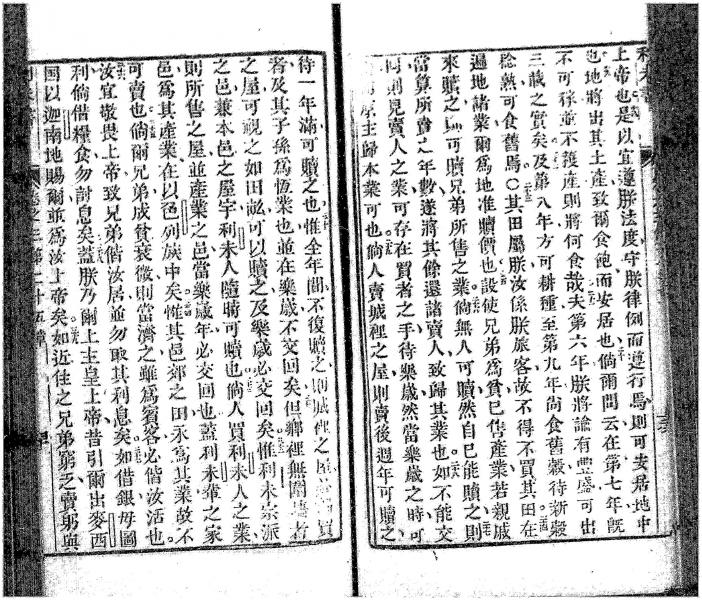 上帝也是以宜遵朕法度守朕律例而遵行焉則可安居地中
也地將出其土產致爾食飽而安居也倘爾問云在第七年既
不可稼並不獲產則將何食哉夫第六年朕將諭有豐盛可出
三歲之實矣及第八年方可耕種至第九年尚食舊穀待新穀
稔熟可食舊焉○其田屬朕汝係朕旅客故不得不買其田在
遍地諸業爾爲地准贖價也設使兄弟爲貧已售產業若親戚
來贖之則可贖兄弟所售之業倘無人可贖然自已能贖之則
當算所賣之年數遂將其餘還諸賣人致歸其業也如不能交
則見賣人之業可存在買者之手待樂歲然當樂歲之時可
原主歸本業可也倘人賣城裡之屋則賣後週年可贖之
待一年滿可贖之也惟全年間不復贖之則城裡之屋
者及其子孫爲恆業也並在樂歲不交回矣但鄉裡無圍墻者
之屋可視之如田畝可以贖之及樂歲必交回矣惟利未宗派
之邑兼本邑之屋宇利未人隨時可贖也倘人買利未人之業
則所售之屋並產業之邑當樂歲年必交回也蓋利未輩之家
邑爲其產業在以色列族中矣惟其邑郊之田永爲其業故不
可賣也倘爾兄弟成貧衰微則當濟之雖爲賓客必偕汝活也
汝宜敬畏上帝致兄弟偕汝居並勿取其利息矣如借銀毋圖
利倘借糧食勿討息矣蓋朕乃爾上主皇上帝昔引爾出麥西
国以迦南地賜爾並爲汝上帝矣如近住之兄弟窮乏賣躬與
之三第二十五章